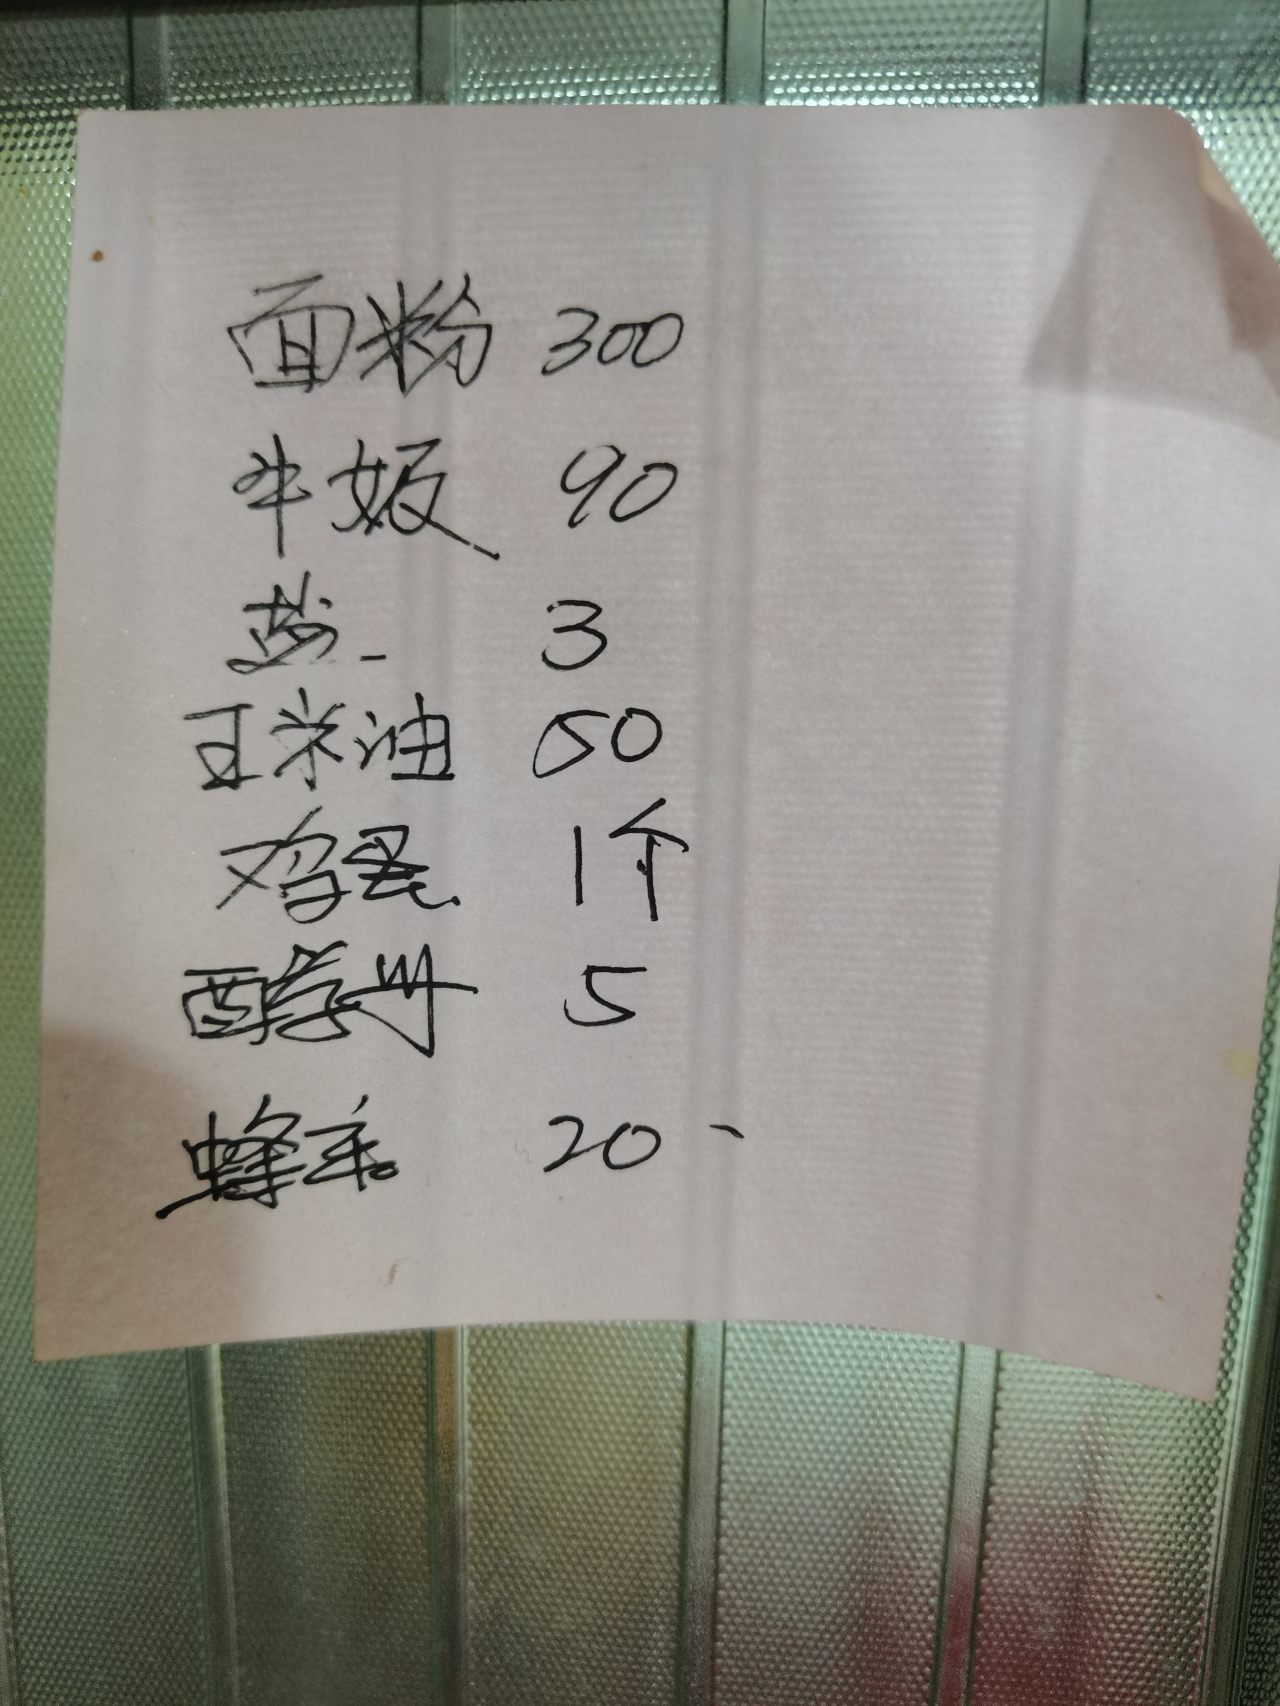 面粉 300
牛奶 90
盐 3
玉米油 50
鸡蛋 1个
酵母 5
蜂蜜 20